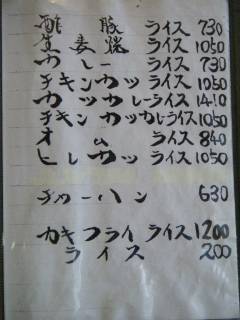 酢豚ライス 730
生姜焼ライス 1050
カレーライス 730
チキンカツライス 1050
カツカレーライス 1410
チキンカツカレーライス 1050
オムライス 840
ヒレカツライス 1050
チャーハン 630
カキフライライス 1200
ライス 200